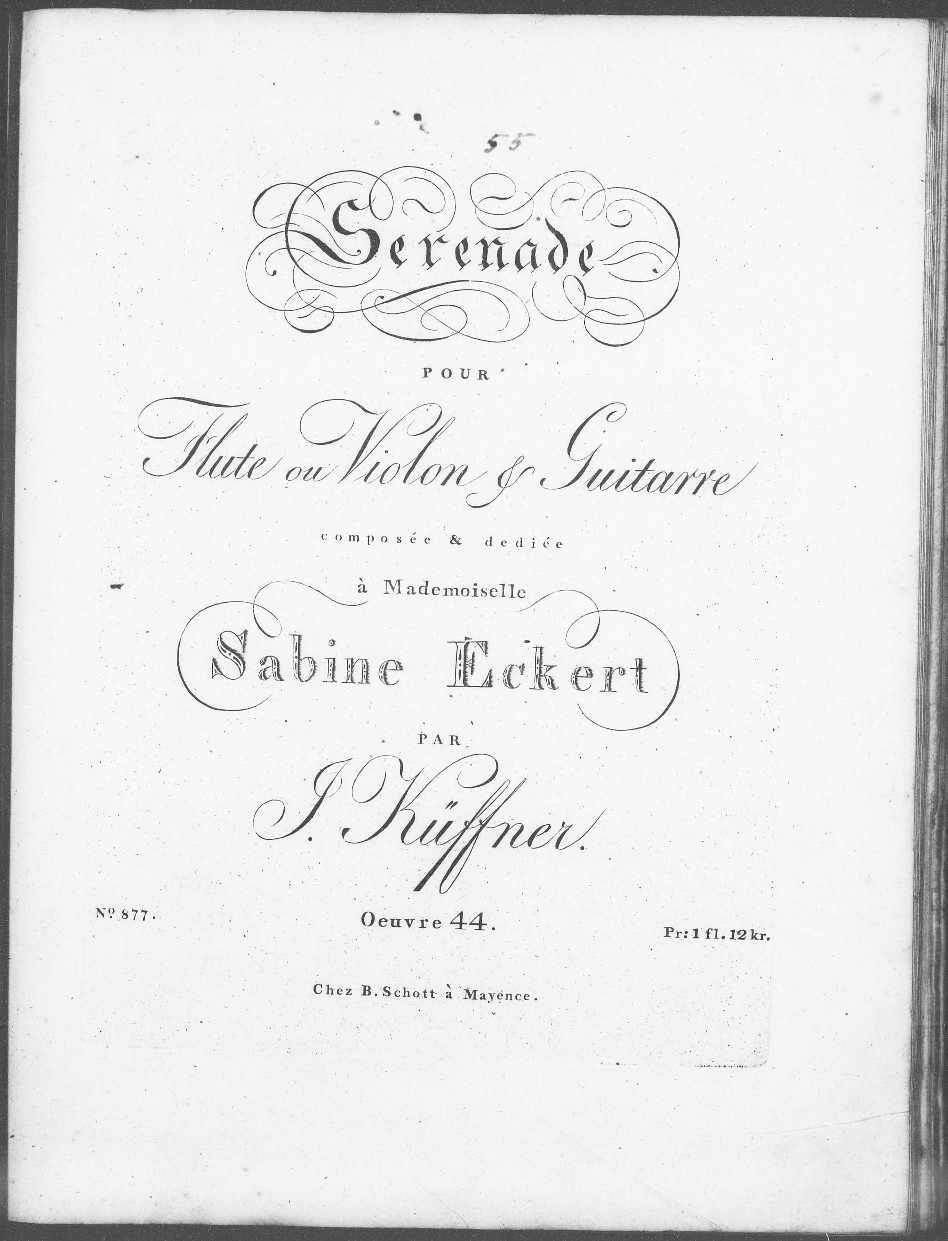 55
Serenade
POUR
Flute ou Violon & Guitarre
composée & dediée
à Mademoiselle
Sabine Eckert
PAR
J. Küffner.
Nº 877.
Oeuvre 44.
Pr: 1 fl. 12 kr.
Chez B. Schott à Mayence.